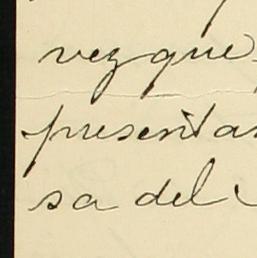 vez que
presenta
sa del